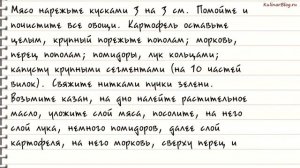 KulinarBlog.ru
Мясо нарежьте кусками 3 на 3 см. Помойте и
почистите все овощи. Картофель оставьте
целым, крупный порежьте пополам; морковь,
перец пополам; помидоры, лук кольцами;
капусту крупными сегментами (на 10 частей
вилок). Свяжите нитками пучки зелени.
Возьмите казан, на дно налейте растительное
масло, уложите слой мяса, посолите, на него
слой лука, немного помидоров, далее слой
картофеля, на него морковь, сверху перец, и